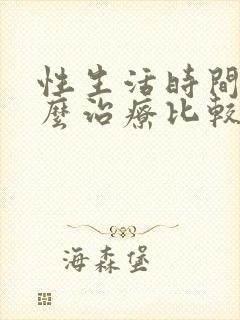 性生活時間
麼治療比較
海森堡